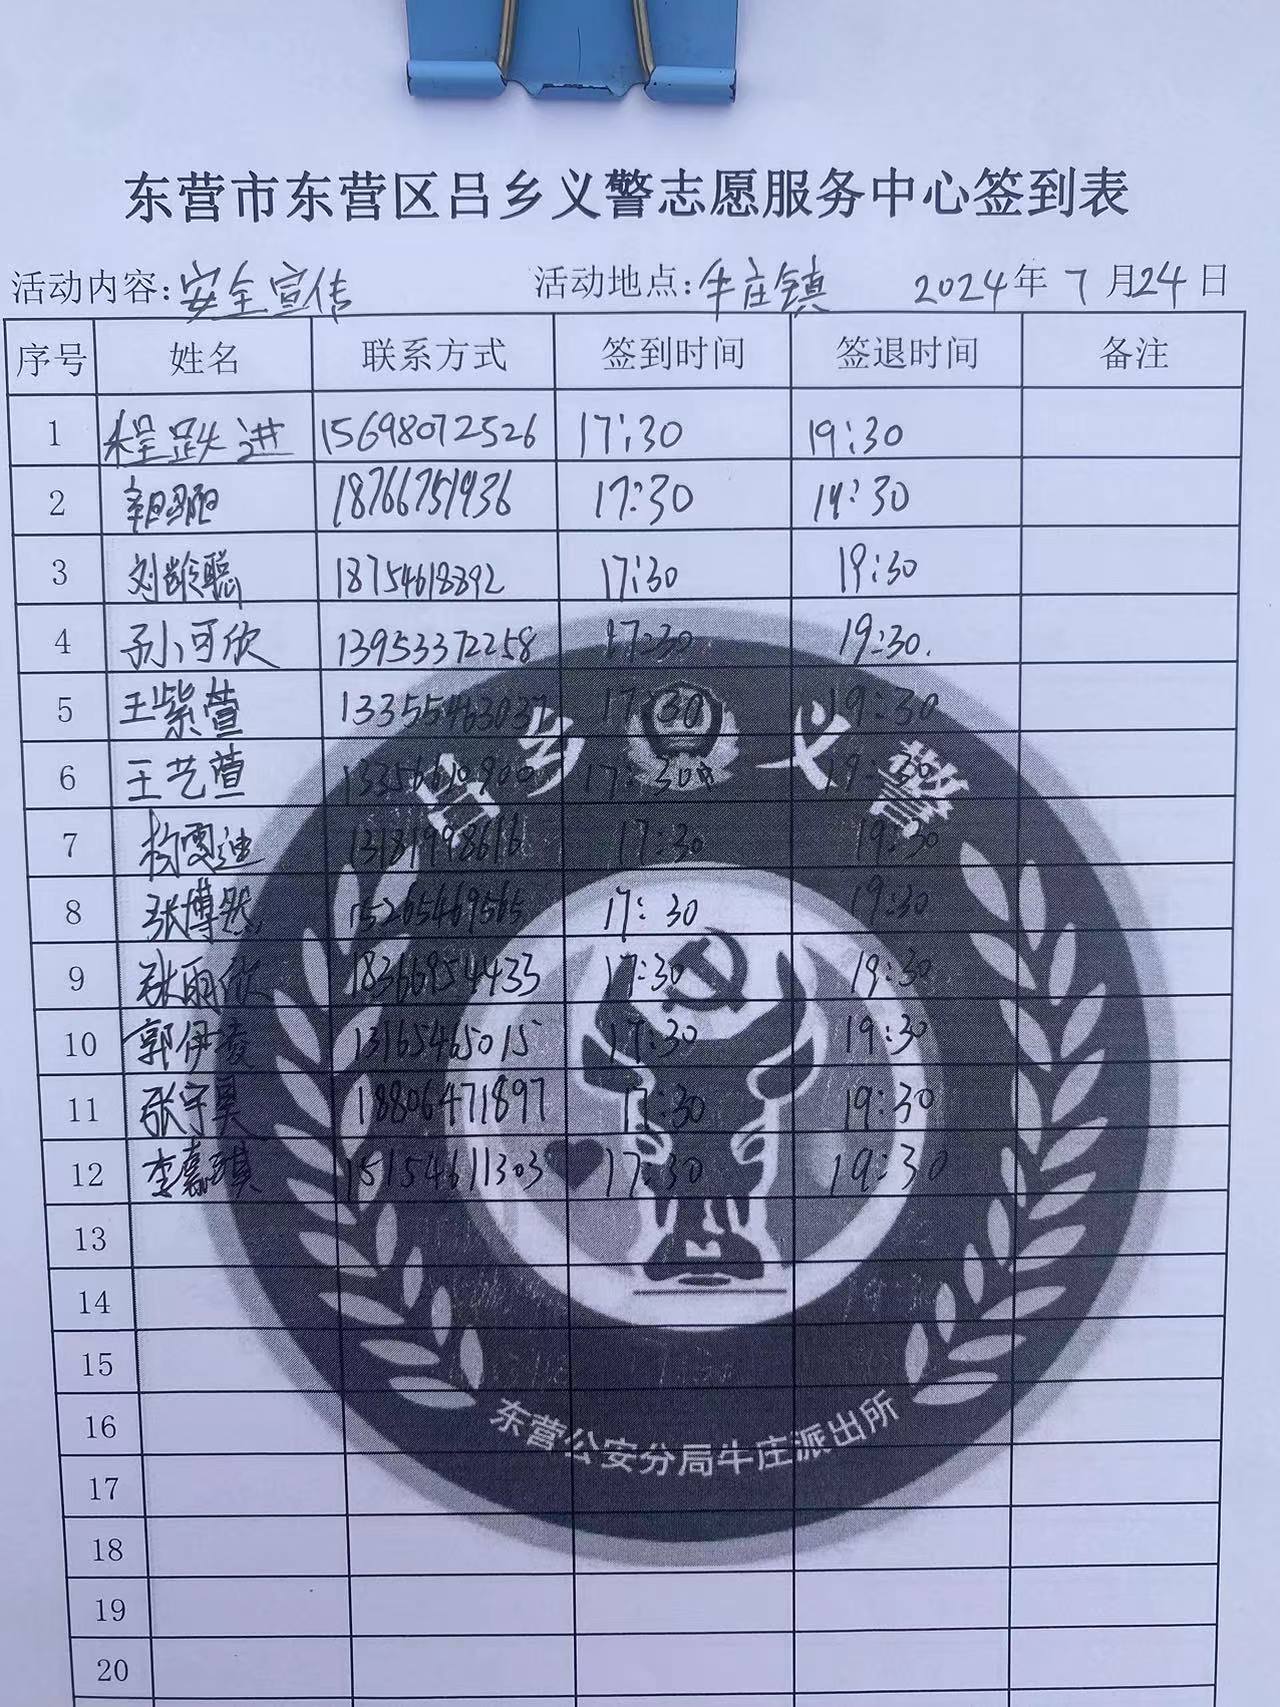 东营市东营区吕乡义警志愿服务中心签到表
活动内容:安全宣传 活动地点:牛庄镇 2024年7月24日
序号 姓名 联系方式 签到时间 签退时间 备注
1 程跃进 15698072526 17:30 19:30
2 18766751936 17:30 19:30
3 刘龄聪 18754618892 17:30 19:30
4 孙可欣 13953372258 17:30 19:30.
5 王紫萱 13355463037 17:30 19:30
6 王艺萱 13356610900 17:30 19:30
7 杨雯迪 13181998616 17:30 19:30
8 张博然 15265469565 17:30 19:30
9 张雨欣 18366954433 17:30 19:30
10 郭伊凌 13165465015 17:30 19:30
11 张宇昊 18806471897 17:30 19:30
12 李嘉琪 15154611303 17:30 19:30
13
14
15
16
17
18
19
20
吕乡义警
东营公安分局牛庄派出所